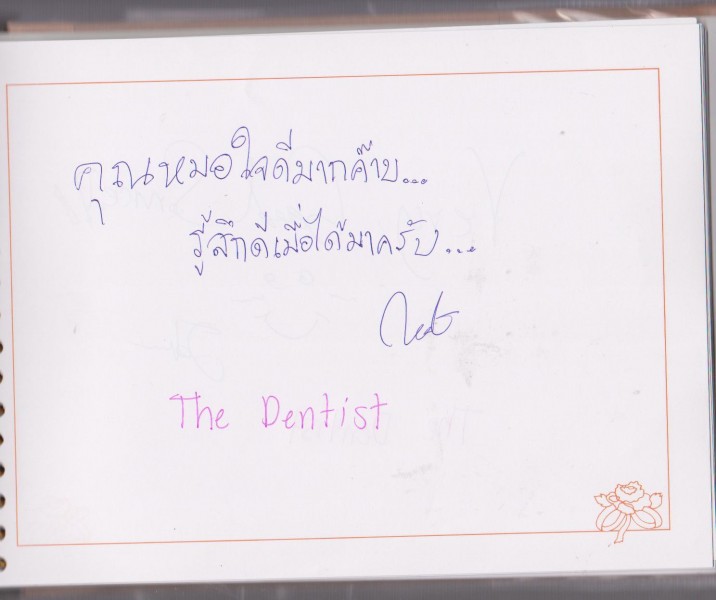 คุณหมอใจดีมากค๊าบ...
รู้สึกดีเมื่อได้มาครับ...
The Dentist